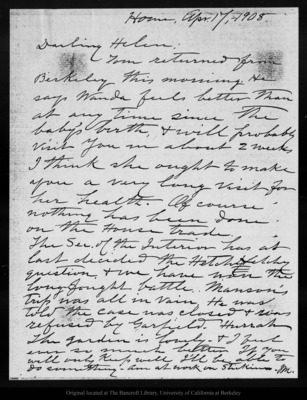 Home, Apr. 17, 1908.
Darling Helen:
Tom returned from
Berkeley this morning. He
says Wanda feels better than
at any time since the
baby's birth, & will probably
visit you in about 2 weeks
I think she ought to make
you a very long visit for
her health. Of course
nothing has been done
on the House trade.
The Sec. of the Interior has at
last decided the Hetch Hetchy
question, & we have won the
long fought battle. Manson's
trip was all in vain. He was
told the case was closed & was
refused by Garfield. Hurrah
The garden is lovely, & I feel
ever so much better. If you
will only keep well I'll be able to
do something. am at work on
Original located at The Bancroft Library, University of California at Berkeley